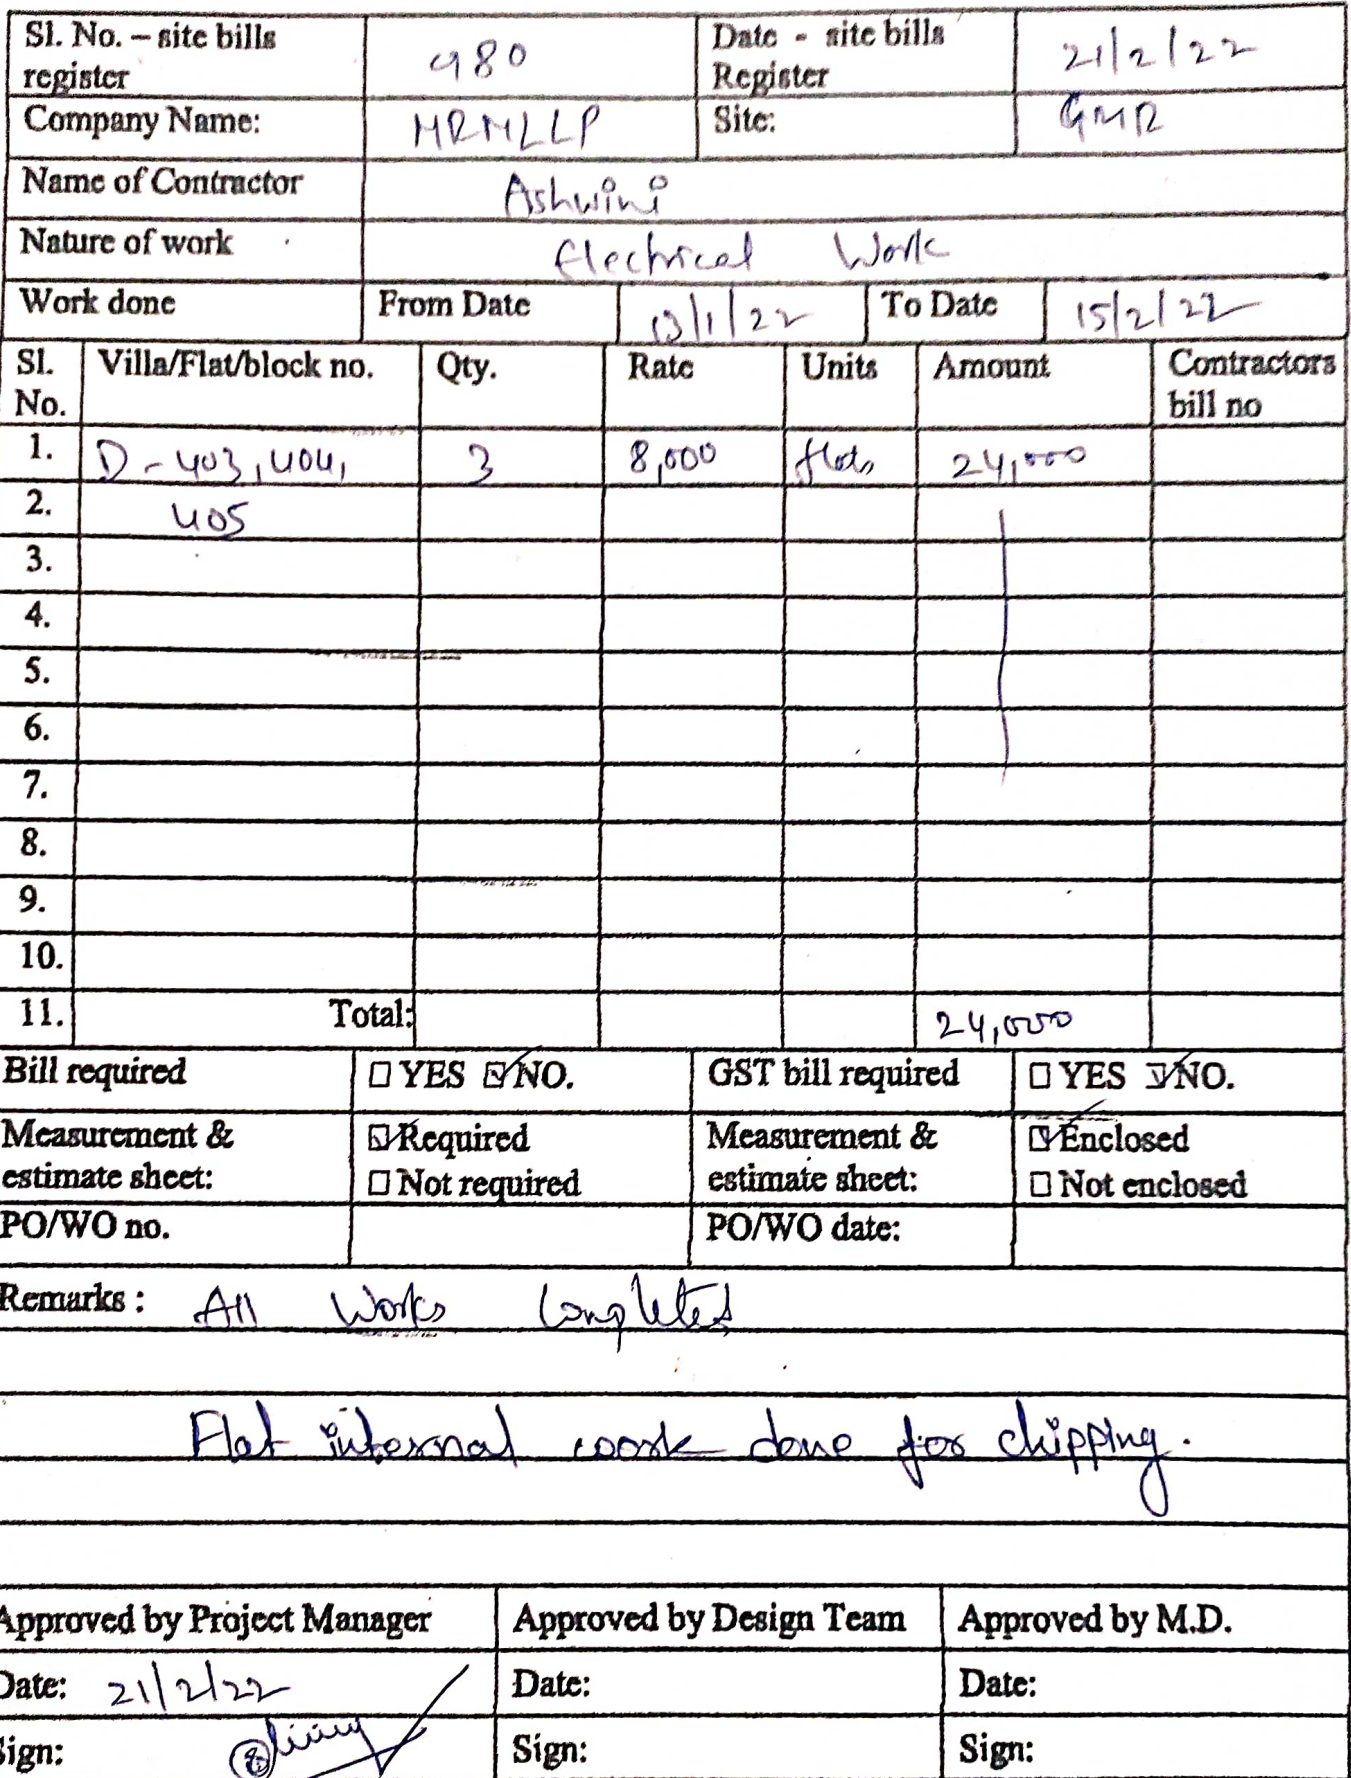 Sl. No. – site bills register 980 Date - site bills Register 21/2/22
Company Name: MRMLLP Site: GMR
Name of Contractor Ashwini
Nature of work Electrical Work
Work done From Date 13/1/22 To Date 15/2/22
Sl. No. Villa/Flat/block no. Qty. Rate Units Amount Contractors bill no
1. D - 403, 404, 3 8,000 flats 24,000
2. 405
3.
4.
5.
6.
7.
8.
9.
10.
11. Total: 24,000
Bill required ☐ YES ☑ NO. GST bill required ☐ YES ☑ NO.
Measurement & estimate sheet: ☑ Required ☐ Not required Measurement & estimate sheet: ☑ Enclosed ☐ Not enclosed
PO/WO no. PO/WO date:
Remarks : All Works Completed
Flat internal work done for chipping.
Approved by Project Manager Approved by Design Team Approved by M.D.
Date: 21/2/22 Date: Date:
Sign: Sign: Sign: